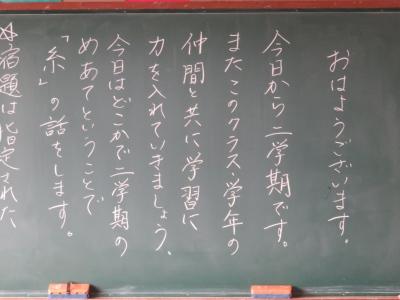 おはようございます。
今日から二学期です。
またこのクラス・学年の
仲間と共に学習に
力を入れていきましょう。
今日はどこかで二学期の
めあてということで
「糸」の話をします。
宿題は指定された